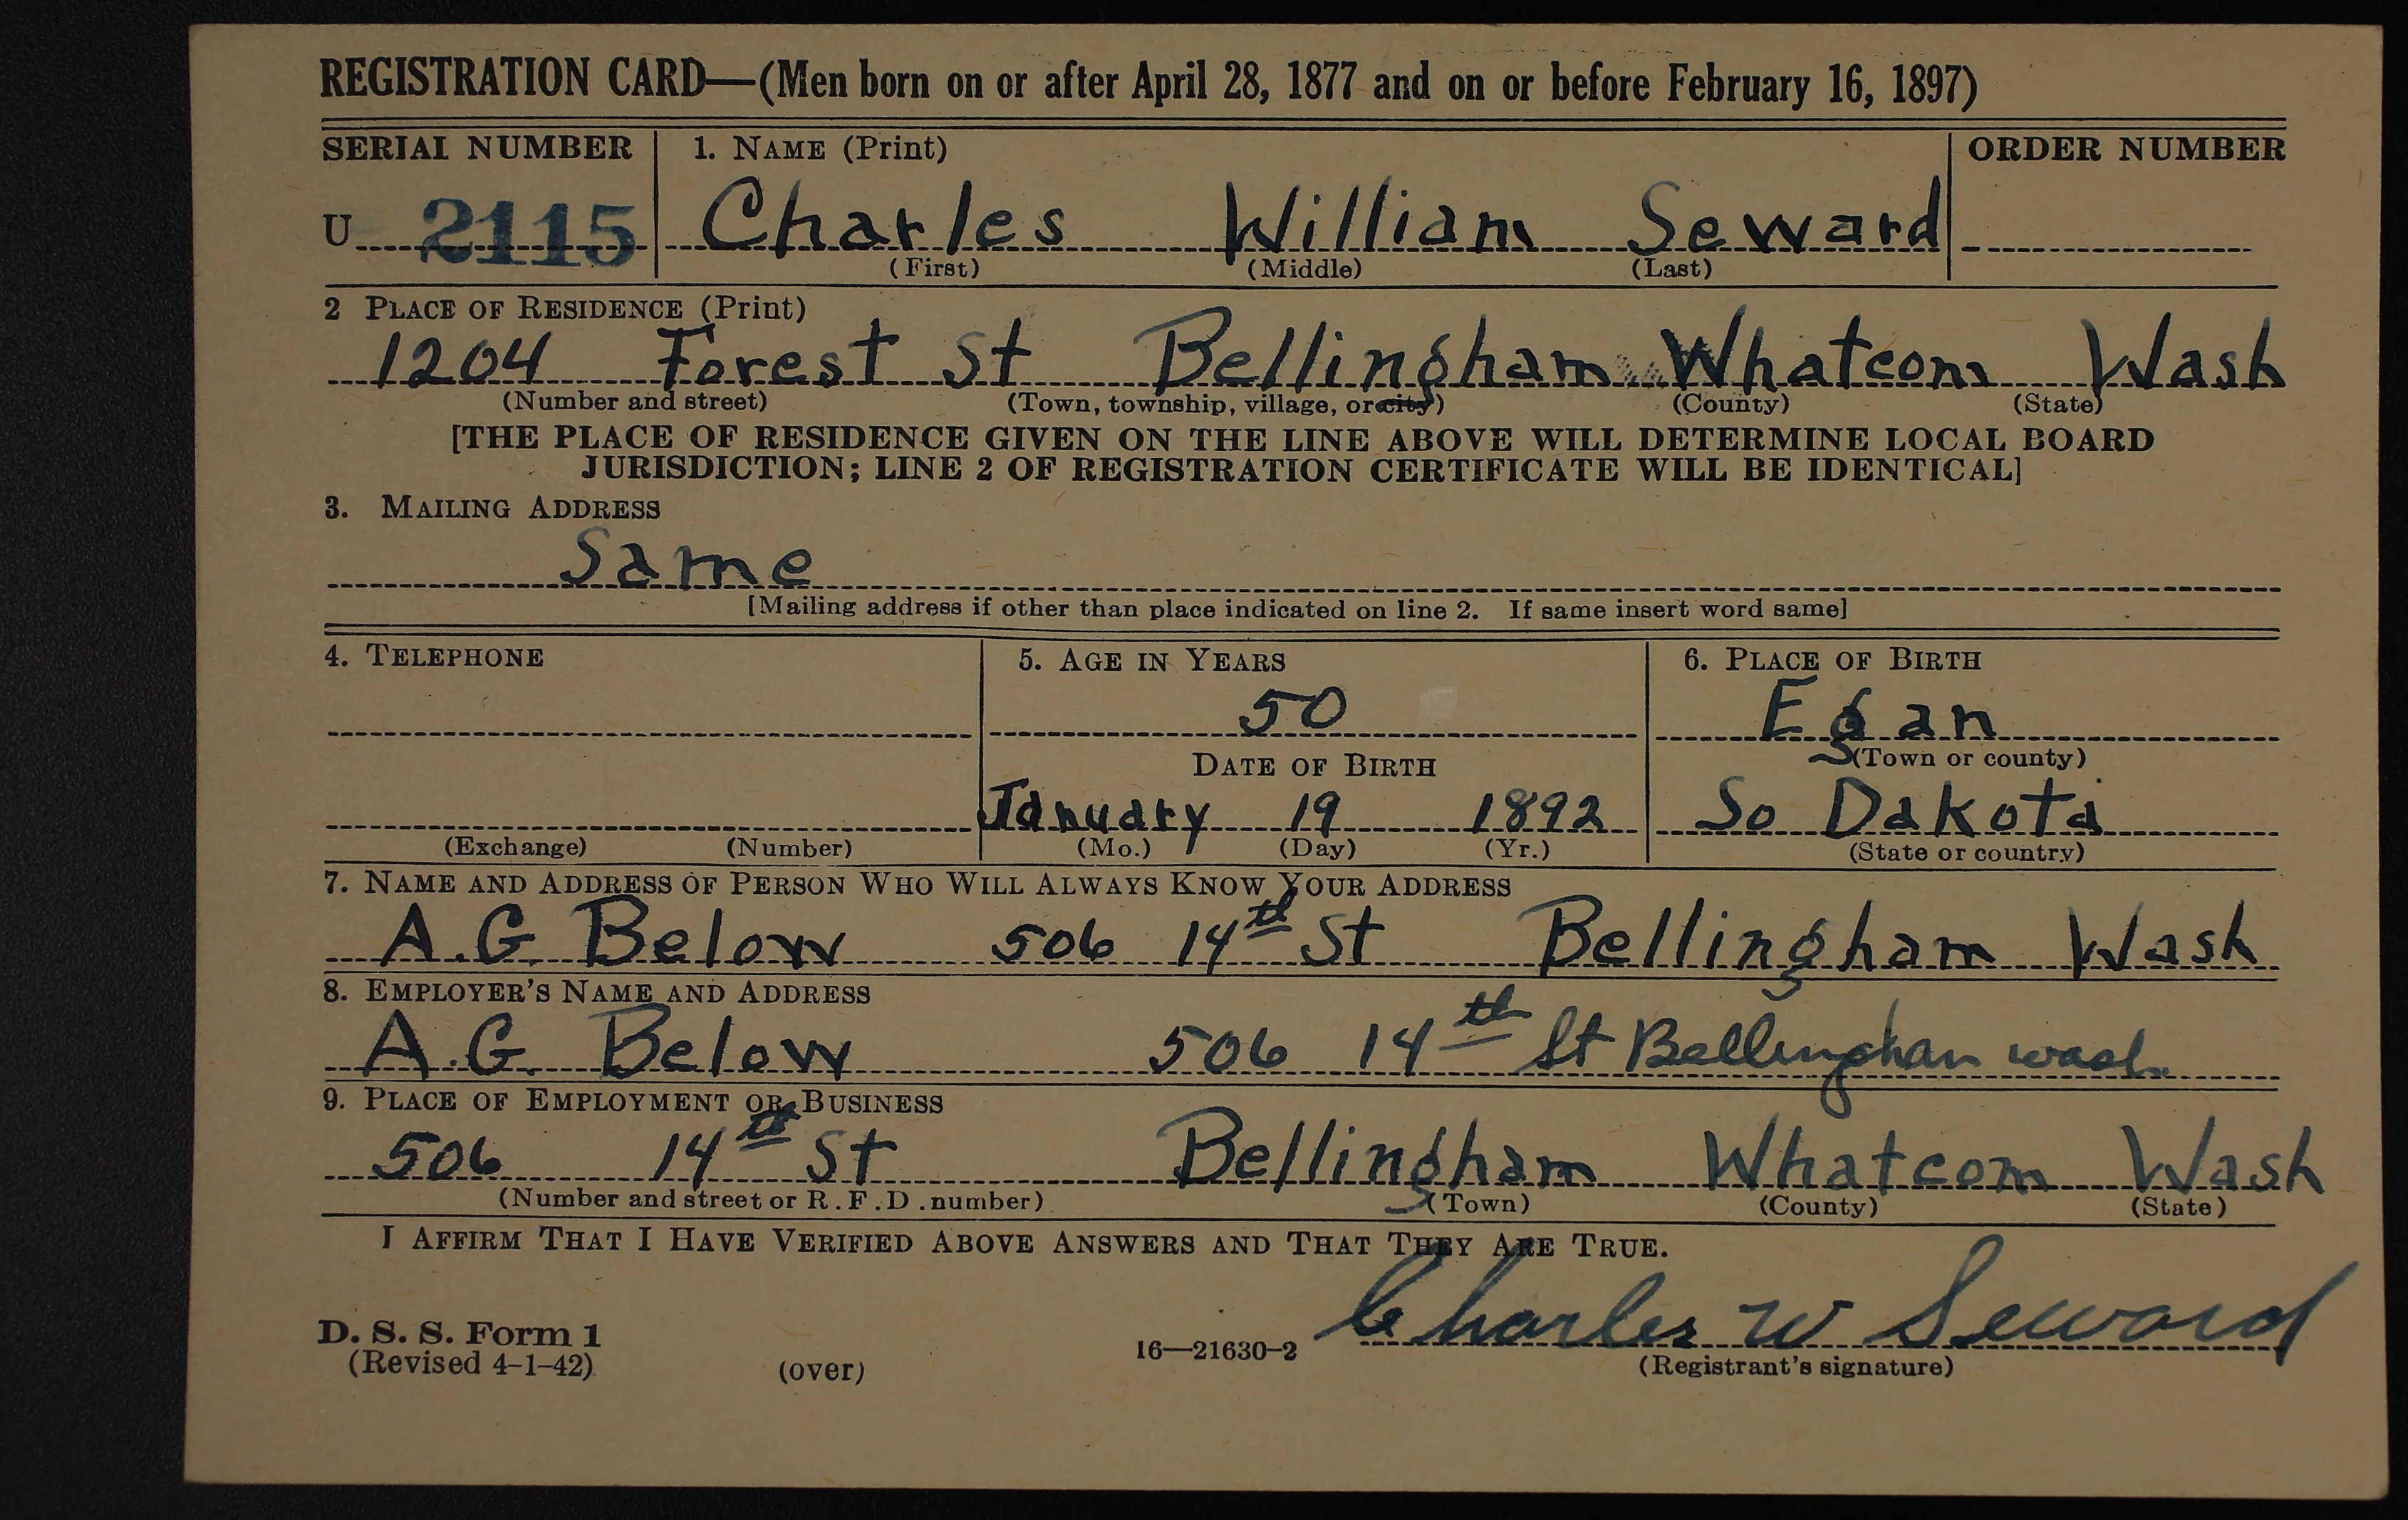 REGISTRATION CARD—(Men born on or after April 28, 1877 and on or before February 16, 1897)
SERIAL NUMBER 1. NAME (Print) ORDER NUMBER
U 2115 Charles William Seward
(First) (Middle) (Last)
2 PLACE OF RESIDENCE (Print)
1204 Forest St Bellingham Whatcom Wash
(Number and street) (Town, township, village, or city) (County) (State)
[THE PLACE OF RESIDENCE GIVEN ON THE LINE ABOVE WILL DETERMINE LOCAL BOARD
JURISDICTION; LINE 2 OF REGISTRATION CERTIFICATE WILL BE IDENTICAL]
3. MAILING ADDRESS
Same
[Mailing address if other than place indicated on line 2. If same insert word same]
4. TELEPHONE 5. AGE IN YEARS 6. PLACE OF BIRTH
50 Egan
DATE OF BIRTH (Town or county)
January 19 1892 So Dakota
(Exchange) (Number) (Mo.) (Day) (Yr.) (State or country)
7. NAME AND ADDRESS OF PERSON WHO WILL ALWAYS KNOW YOUR ADDRESS
A.G. Below 506 14th St Bellingham Wash
8. EMPLOYER'S NAME AND ADDRESS
A.G. Below 506 14th St Bellingham wash
9. PLACE OF EMPLOYMENT OR BUSINESS
506 14th St Bellingham Whatcom Wash
(Number and street or R.F.D. number) (Town) (County) (State)
I AFFIRM THAT I HAVE VERIFIED ABOVE ANSWERS AND THAT THEY ARE TRUE.
Charles W Seward
D. S. S. Form 1 16—21630-2
(Revised 4-1-42) (over) (Registrant's signature)